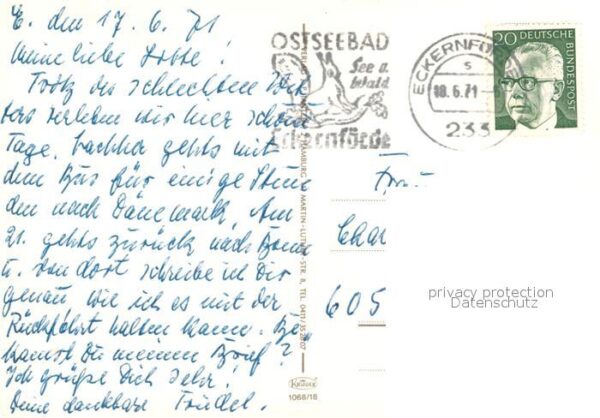 E. den 17. 6. 71
Meine liebe Lotte!
Trotz des schlechten Wet
ters verleben wir hier schöne
Tage. Nachher gehts mit
dem Bus für einige Stun
den nach Dänemark. Am
21. gehts zurück nach Bonn
u. von dort schreibe ich Dir
genau wie ich es mit der
Rückfahrt halten kann. Be-
kamst Du meinen Brief?
Ich grüße Dich sehr!
Deine dankbare Trudel.
OSTSEEBAD
See u.
Wald
Eckernförde
ECKERNFÖ
18.6.71
233
20 DEUTSCHE
BUNDESPOST
HAMBURG MARTIN-LUTHER-STR. 8, TEL. 0411/35 28 07
KRÜGER
1068/18
Frau
Char
605
privacy protection
Datenschutz